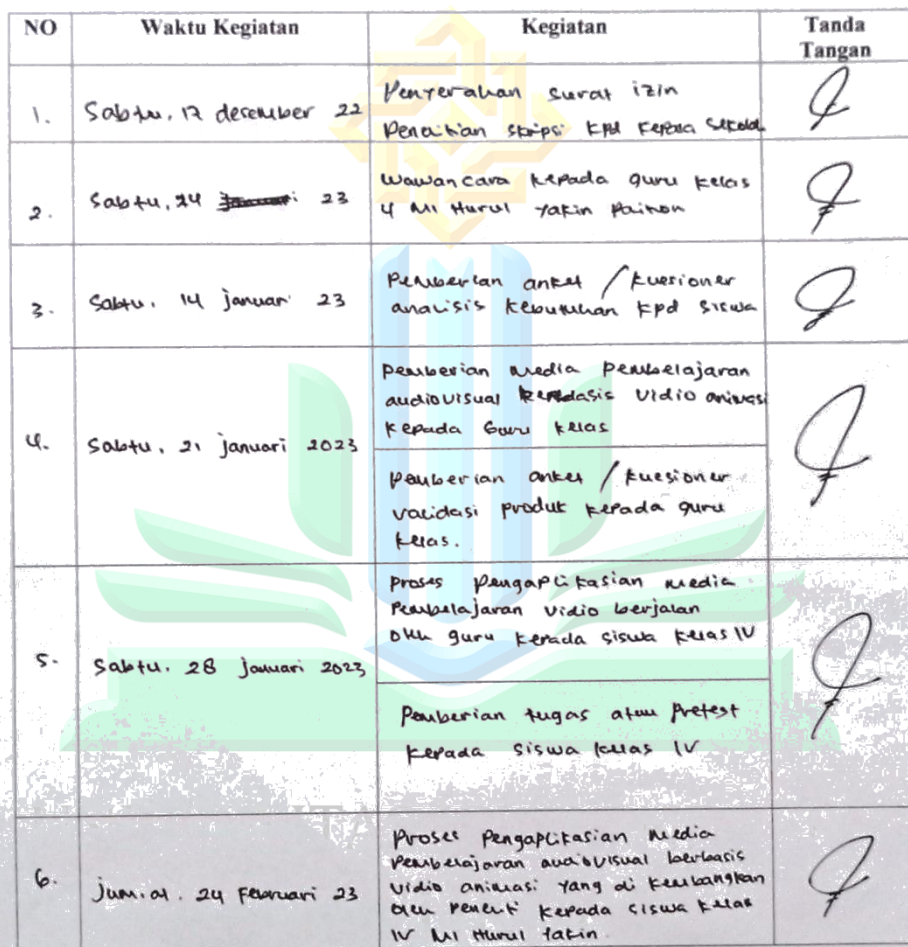 NO Waktu Kegiatan Kegiatan Tanda Tangan
1. Sabtu, 17 desember 22
Penyerahan surat izin
Penelitian skripsi kpd Kepala Sekolah
2. Sabtu, 24 23
Wawancara kepada guru kelas
4 MI Nurul Yakin Paiton
3. Sabtu, 14 januari 23
Pemberian anket / kuesioner
analisis kebutuhan kpd siswa
4. Sabtu, 21 januari 2023
Pemberian media pembelajaran
audiovisual vidio animasi
kepada Guru kelas
Pemberian anket / kuesioner
validasi produk kepada guru
kelas.
5. Sabtu, 28 januari 2023
Proses pengaplikasian media
Pembelajaran vidio berjalan
oleh guru kepada siswa kelas IV
Pemberian tugas atau Pretest
kepada siswa kelas IV
6. Jum'at, 24 Februari 23
Proses Pengaplikasian media
Pembelajaran audiovisual berbasis
vidio animasi yang di kembangkan
oleh peneliti kepada siswa kelas
IV MI Nurul Yakin